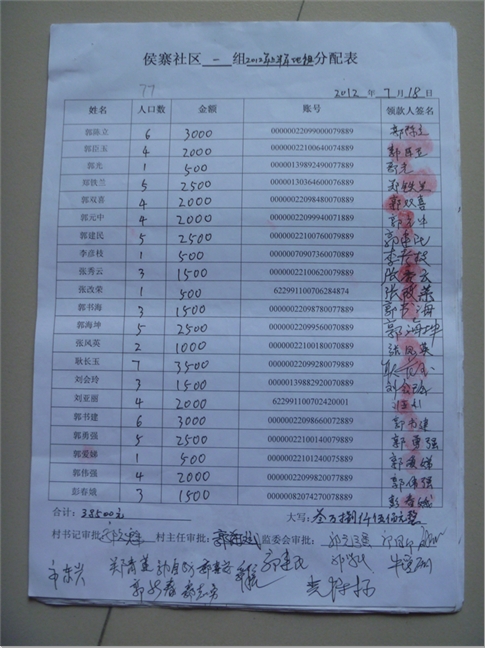 侯寨社区 一 组2012年上半年地租分配表
77 2012 年 7 月 18 日
姓名 人口数 金额 账号 领款人签名
郭陈立 6 3000 00000022099000079889 郭陈立
郭臣玉 4 2000 00000022100640074889 郭臣玉
郭光 1 500 00000139892490077889 郭光
郑铁兰 5 2500 00000130364600076889 郑铁兰
郭双喜 4 2000 00000022098480070889 郭双喜
郭元中 4 2000 00000022099940071889 郭元中
郭建民 5 2500 00000022100760079889 郭建民
李彦枝 1 500 00000070907360070889 李彦枝
张秀云 3 1500 00000022100620079889 张秀云
张改荣 1 500 622991100706284874 张改荣
郭书海 3 1500 00000022098780077889 郭书海
郭海坤 5 2500 00000022099560070889 郭海坤
张凤英 2 1000 00000022100180070889 张凤英
耿长玉 7 3500 00000022099280079889 耿长玉
刘会玲 3 1500 00000013988292007​0889 刘会玲
刘亚丽 4 2000 622991100702420001
郭书建 6 3000 00000022098660072889 郭书建
郭勇强 5 2500 00000022100140079889 郭勇强
郭爱娣 1 500 00000022101240075889 郭爱娣
郭伟强 4 2000 00000022099820077889 郭伟强
彭春娥 3 1500 00000082074270078889 彭春娥
合计：38500元 大写：叁万捌仟伍佰元整
村书记审批： 村主任审批： 监委会审批：
郭建民